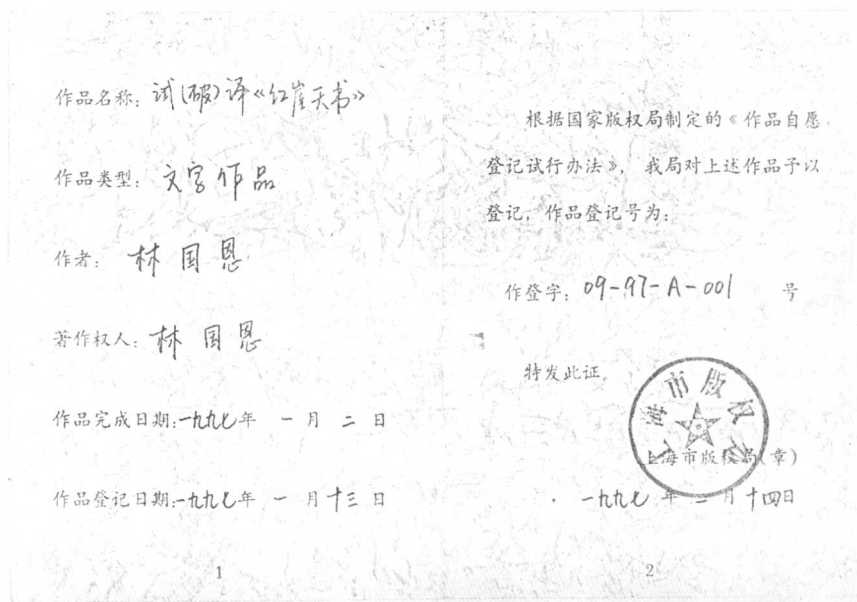 作品名称：试(破)译《红崖天书》
作品类型：文字作品
作者：林国恩
著作权人：林国恩
作品完成日期：一九九七年 一月 二日
作品登记日期：一九九七年 一月 十三日
1
根据国家版权局制定的《作品自愿
登记试行办法》，我局对上述作品予以
登记，作品登记号为：
作登字：09-97-A-001 号
特发此证
上海市版权局
上海市版权局(章)
一九九七年 二月 十四日
2